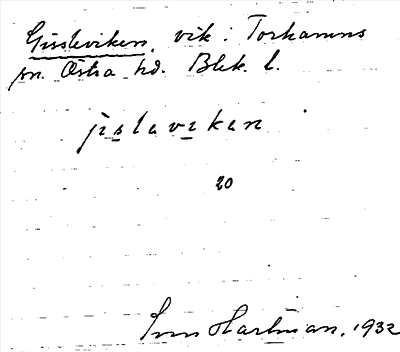 Gissleviken, vik i Torhamns
sn. Östra hd. Blek. l.
jislavikan
20
Sven Hartman. 1932